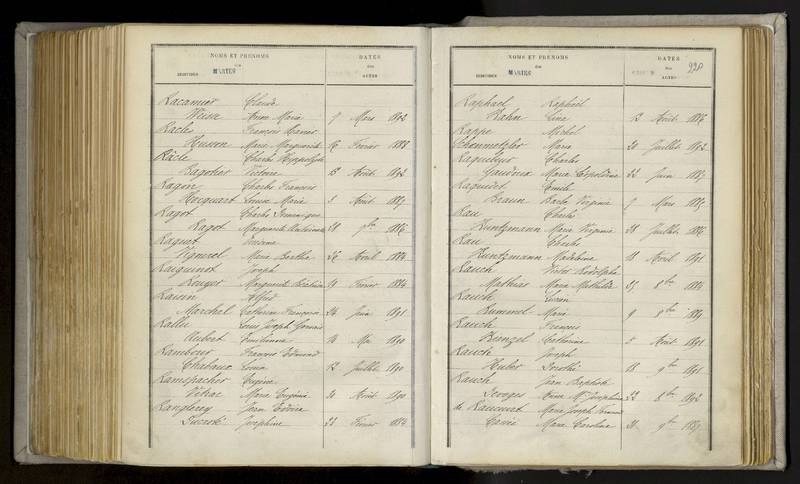 NOMS ET PRÉNOMS
des
INDIVIDUS MARIÉS
DATES
des
ACTES
Racamier Claude
Weisse Anne Marie 9 Mars 1892
Racle François Xavier
Husson Marie Marguerite 16 Février 1888
Râcle Charles Hyppolyte
Victoire 13 Août 1892
Ragon Charles François
Hocquart Louise Marie 3 Août 1887
Ragot Charles
Ragot Marguerite 28 9bre 1886
Raguet
Marie Berthe 22 Avril 1884
Raiguinot Joseph
Rouyer Marguerite 19 Février 1884
Raisin Alfred
Marchal Catherine Françoise 24 Juin 1891
Rallu Louis Joseph
Aubert 14 Mai 1890
Rambour François Edouard
Louise 12 Juillet 1890
Ramspacher Eugène
Marie Eugénie 30 Août 1890
Ranglerey Jean
Ducroté Joséphine 23 Février 1884
NOMS ET PRÉNOMS
des
INDIVIDUS MARIÉS
DATES
des
ACTES
228
Raphael Raphaël
Kahn 12 Août 1886
Rappe Michel
Schonmetzler Marie 20 Juillet 1892
Raqueteur Charles
Marie Léopoldine 22 Juin 1887
Raquidet Emile
Braun Barbe Virginie 7 Mars 1885
Rau Charles
Huntzmann Marie Virginie 28 Juillet 1886
Rau Charles
Huntzmann Madeleine 18 Avril 1891
Rauch Victor Rodolphe
Mathias Marie Mathilde 25 8bre 1884
Rauch
Hummel Marie 9 8bre 1889
Rauch François
Hunzel Catherine 5 Août 1891
Rauch Joseph
Huber Dorothé 18 9bre 1891
Rauch Jean Baptiste
Georges Anne Mie Joséphine 22 8bre 1892
de Raucourt Marie Joseph
Marie Caroline 21 9bre 1887